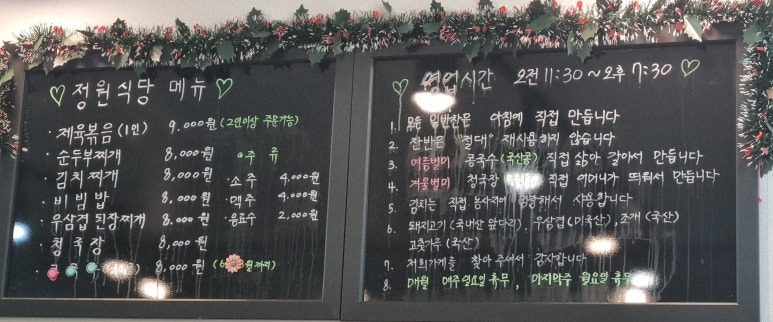 정원식당 메뉴
· 제육볶음 (1인) 9.000원 (2인이상 주문가능)
· 순두부찌개 8,000원
· 김치찌개 8,000원
· 비빔밥 8,000원
· 우삼겹 된장찌개 8,000원
· 청국장 8,000원
8,000원
주류
소주 4,000원
맥주 4,000원
음료수 2,000원
영업시간 오전 11:30 ~ 오후 7:30
1. 모든 일반찬은 아침에 직접 만듭니다
2. 잔반은 "절대" 재사용 하지 않습니다
3. 여름별미 콩국수 (국산콩) 직접 삶아 갈아서 만듭니다
4. 겨울별미 청국장 직접 어머니가 띄워서 만듭니다
5. 김치는 직접 농사지어 사용합니다
6. 돼지고기 (국내산 앞다리), 우삼겹 (미국산), 조개 (국산)
고춧가루 (국산)
7. 저희가게를 찾아 주셔서 감사합니다
8. 매월 매주일요일 휴무, 마지막주 월요일 휴무